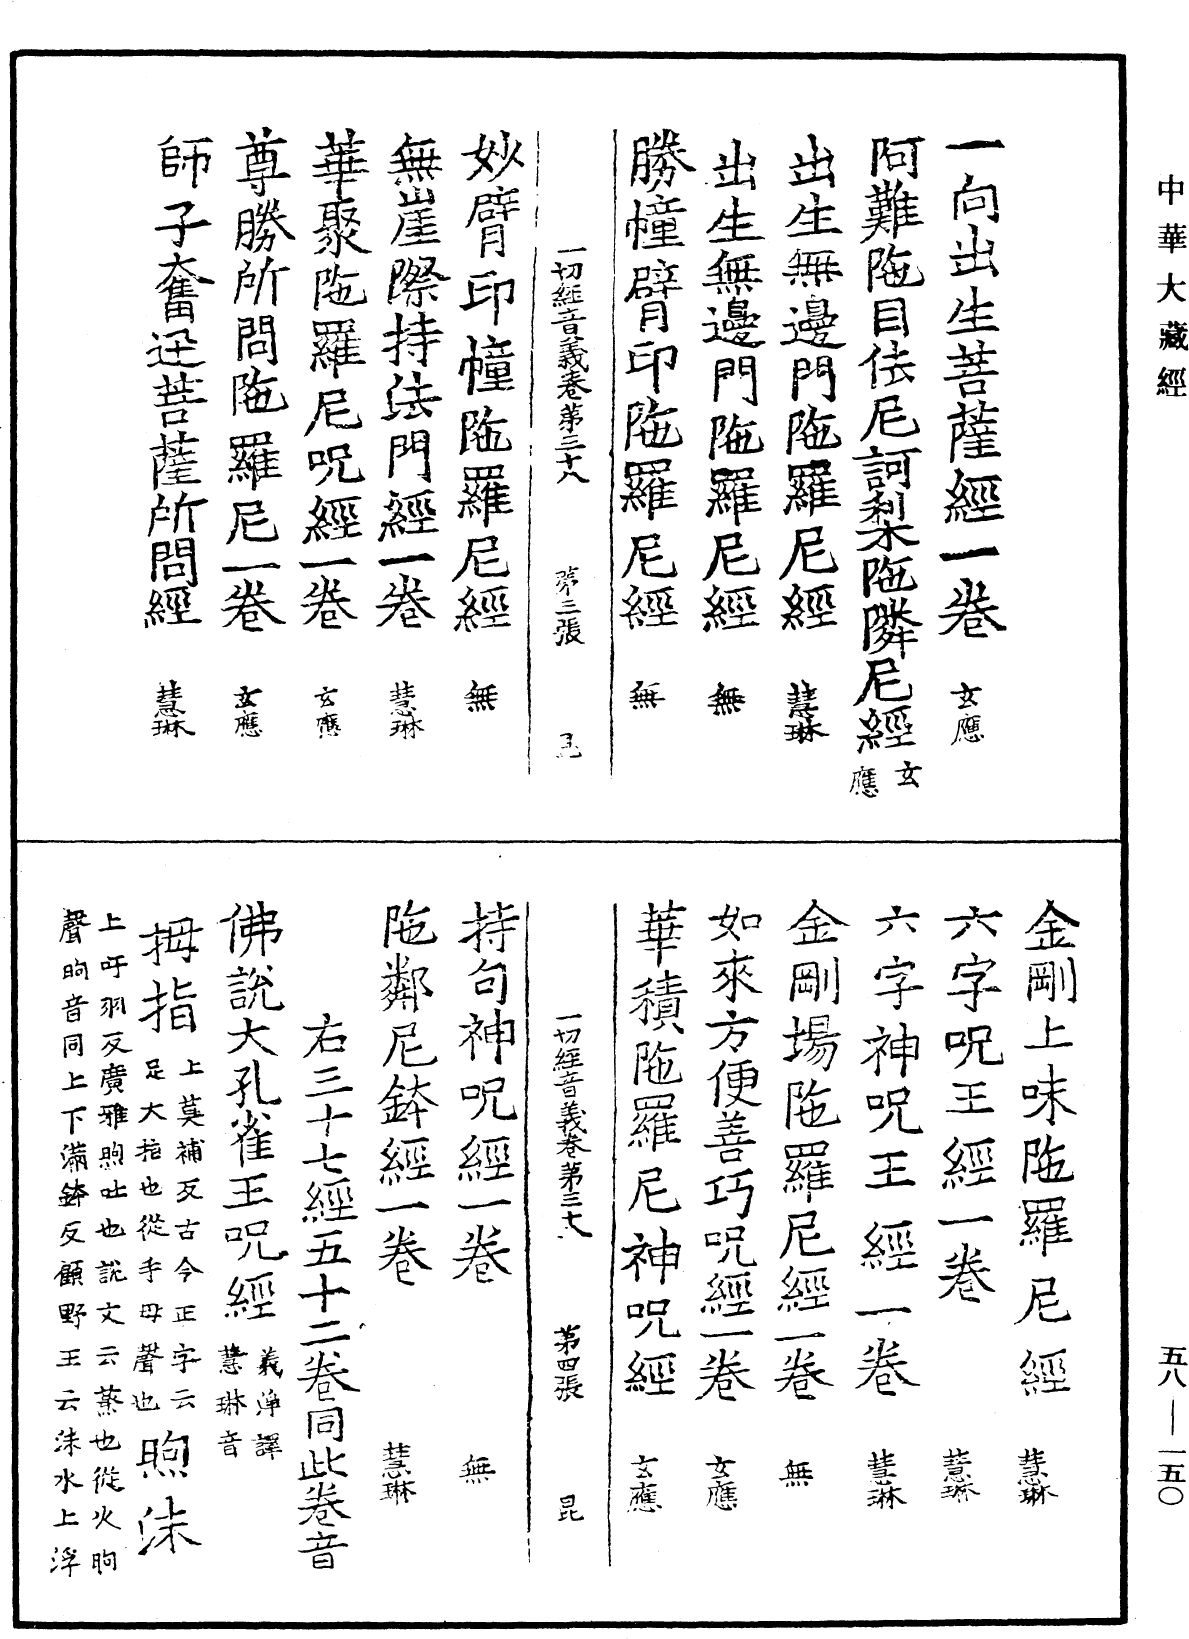 中華大藏經
一向出生菩薩經一卷 玄應
阿難陁目佉尼訶梨陁隣尼經 玄應
出生無邊門陁羅尼經 慧琳
出生無邊門陁羅尼經 無
勝幢臂印陁羅尼經 無
一切經音義卷第三十八 第三張 昆
妙臂印幢陁羅尼經 無
無崖際持法門經一卷 慧琳
華聚陁羅尼呪經一卷 玄應
尊勝所問陁羅尼一卷 玄應
師子奮迅菩薩所問經 慧琳
金剛上味陁羅尼經 慧琳
六字呪王經一卷 慧琳
六字神呪王經一卷 慧琳
金剛場陁羅尼經一卷 無
如來方便善巧呪經一卷 玄應
華積陁羅尼神呪經 玄應
一切經音義卷第三十八 第四張 昆
持句神呪經一卷 無
陁鄰尼鉢經一卷 慧琳
右三十七經五十二卷同此卷音
佛說大孔雀王呪經 義淨譯 慧琳音
拇指 上莫補反古今正字云足大指也從手母聲也 煦沫
上吁羽反廣雅煦吐也說文云蒸也從火昫
聲昫音同上下滿鉢反顧野王云沫水上浮
五八—一五〇